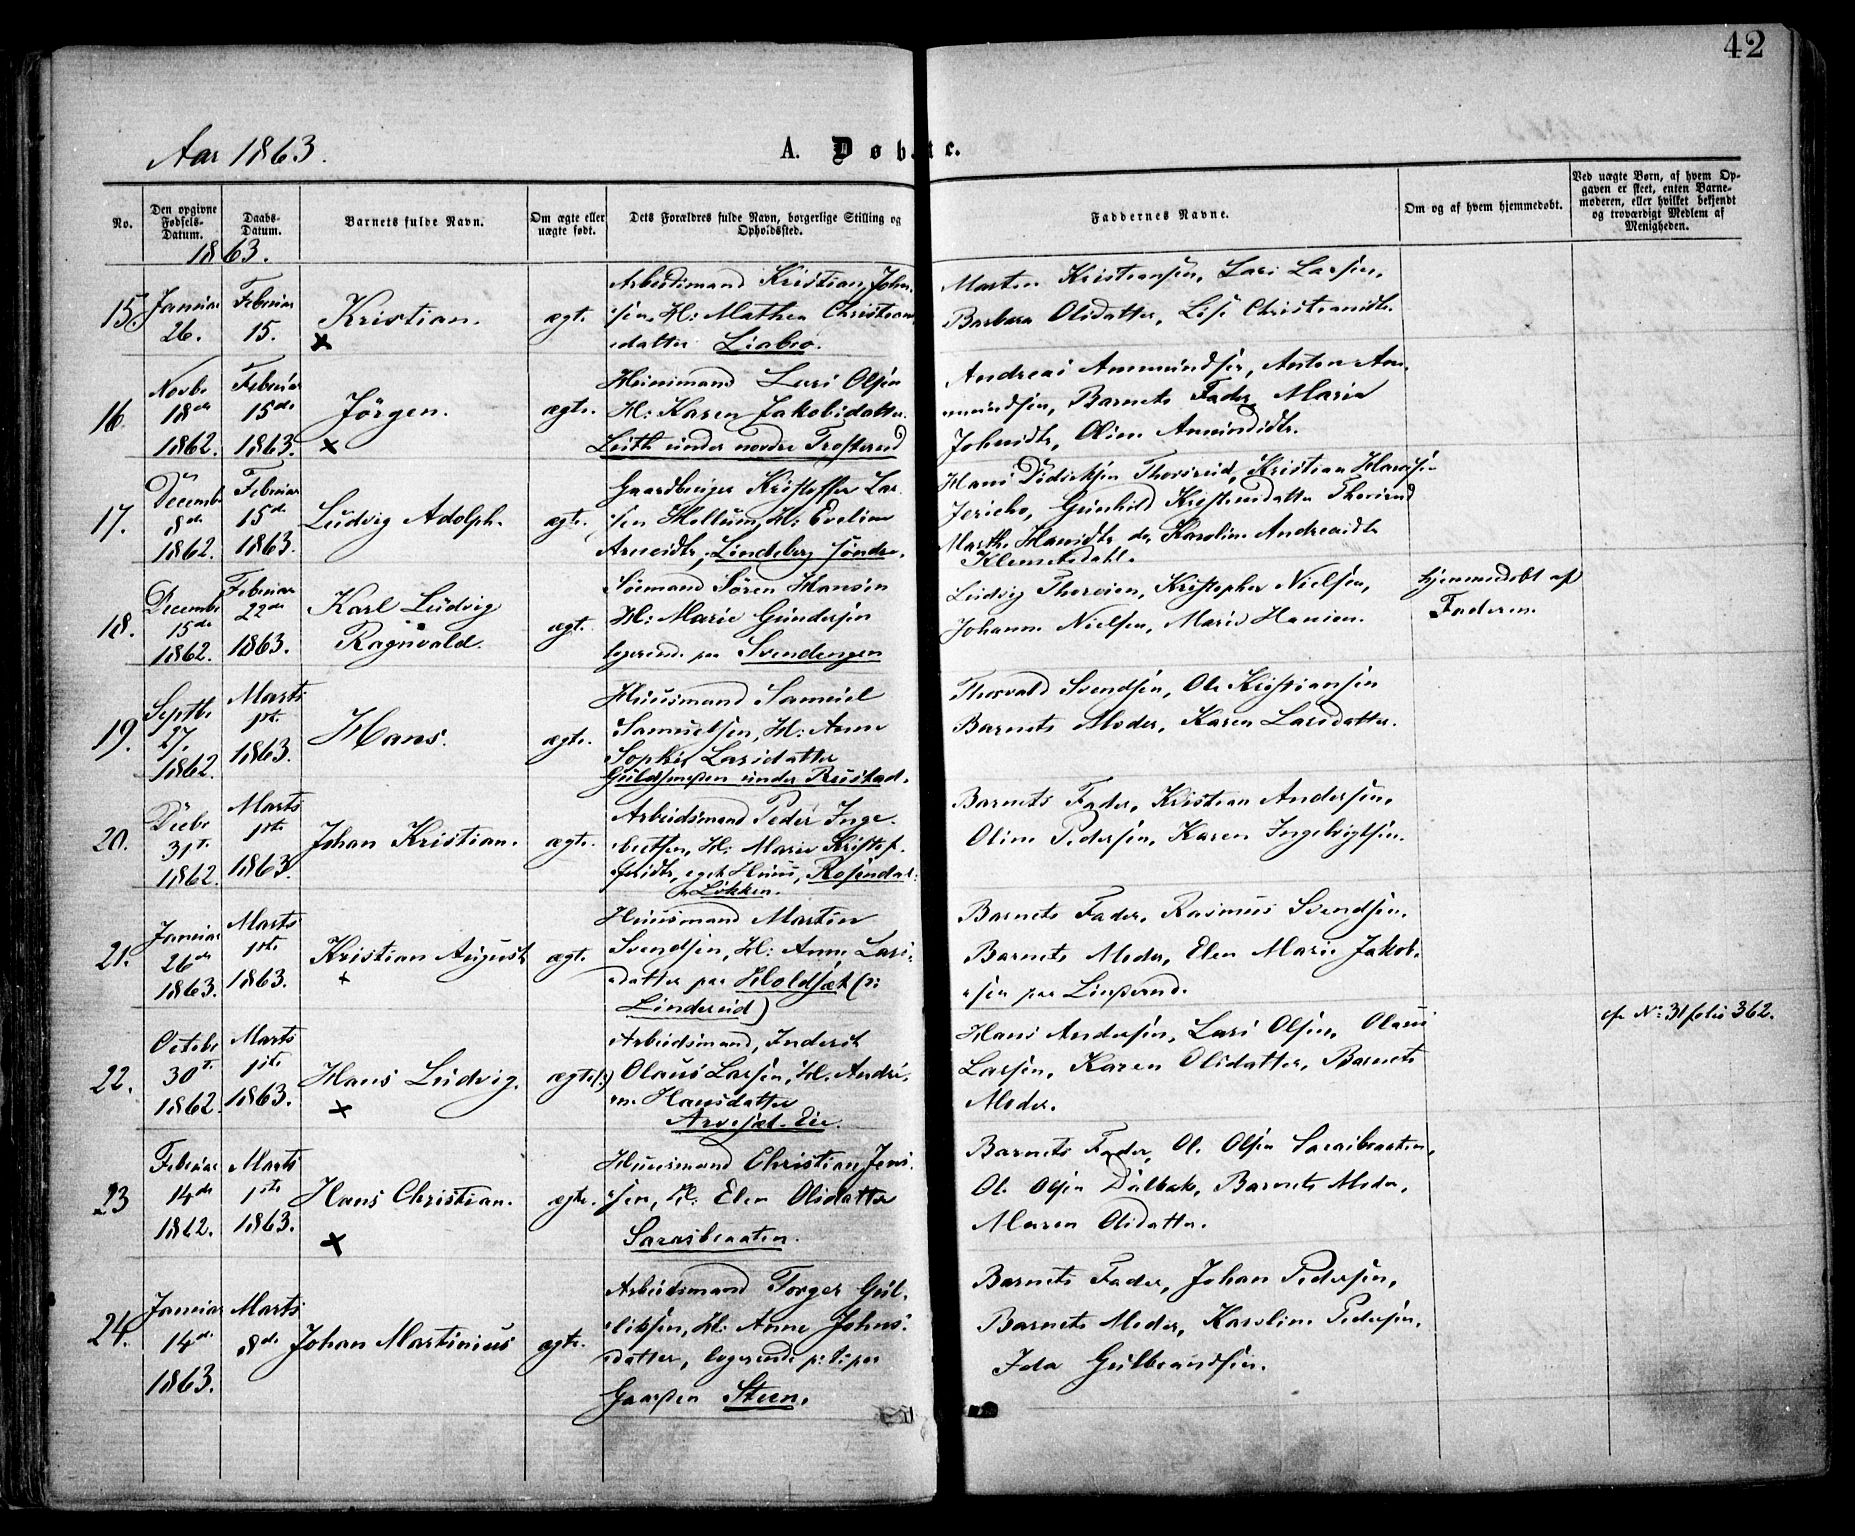 42
Aar 1863.
A. Døbte.
No.
Den opgivne Fødsels-Datum.
Daabs-Datum.
Barnets fulde Navn.
Om ægte eller uægte født.
Dets Forældres fulde Navn, borgerlige Stilling og Opholdssted.
Faddernes Navne.
Om og af hvem hjemmedøbt.
Ved uægte Børn, af hvem Opgaven er skeet, enten Barnemoderen, eller hvilket bekjendt og troværdigt Medlem af Menigheden.
1863.
15. Januar 26. Februar 15. Kristian. ægte.
Arbeidsmand Kristian John-
sen, H: Mathea Christians
datter Liabro.
Morten Kristiansen, Lars Larsen,
Barbara Olsdatter, Lise Christiansdtr.
16. Novbr 18de 1862. Februar 15de 1863. Jörgen. ægte.
Huusmand Lars Olsen
H: Karen Jakobsdatter
under nordre
Andreas Ammundsen, Anton Am-
mundsen, Barnets Fader, Maria
Johnsdtr, Oline Amundsdtr.
17. Decembr 8de 1862. Februar 15de 1863. Ludvig Adolph. ægte.
Gaardbruger Kristoffer Lar-
sen Mellum, H: Eveline
Arnesdtr, Lindeberg söndre.
Hans Didriksen Thorsrud, Kristian Hansen
Jericho, Gunhild Kristensdatter Thorsrud
Marthe Hansdtr de Karoline Andreasdtr
Klemetsdahl.
18. Decembr 15de 1862. Februar 22de 1863. Karl Ludvig ægte.
Ragnvald.
Sömand Sören Hansen
H: Marie Gundersen
logerende paa Svendengen
Ludvig Thoresen, Kristopher Nielsen,
Johanne Nielsen, Marie Hansen.
hjemmedøbt af
Faderen.
19. Septbr 27. 1862. Marts 1ste 1863. Hans. ægte.
Huusmand Samuel
Samuelsen, H: Anne
Sophie Larsdatter
under Rustad.
Thorvald Svendsen, Ole Kristiansen
Barnets Moder, Karen Larsdatter.
20. Decbr 31te 1862. Marts 1ste 1863. Johan Kristian. ægte.
Arbeidsmand Peder Inge-
bretsen, H: Marie Kristof-
fersdtr, eget Huus, Rosendal
Løkken.
Barnets Fader, Kristian Andersen,
Oline Pedersen, Karen Ingebrigtsen.
21. Januar 26de 1863. Marts 1ste 1863. Kristian August ægte
Huusmand Martin
Svendsen, H: Anne Lars-
datter paa Holdsæt (o:
Linderud)
Barnets Fader, Rasmus Svendsen,
Barnets Moder, Elen Marie Jakob-
sen paa Linderud.
22. Octobr 30te 1862. Marts 1ste 1863. Hans Ludvig. ægte(:)
Arbeidsmand, Inderst
Olaus Larsen, H. Andri-
ne Hansdatter
Arvesæt Eie.
Hans Andersen, Lars Olsen, Olaus
Larsen, Karen Olsdatter, Barnets
Moder.
cfr No 31 folio 362.
23 Februar 14de 1862. Marts 1ste 1863. Hans Christian. ægte.
Huusmand Christian Jens-
sen, H: Elen Olsdatter
Sarasbraaten.
Barnets Fader, Ole Olsen Sarasbraaten,
Ole Olsen Dalbak, Barnets Moder,
Maren Olsdatter.
24. Januar 14de 1863. Marts 8de Johan Martinius ægte.
Arbeidsmand Torger Gul-
liksen, H: Anne Johns-
datter, logerende p: t: paa
Gaarden Steen.
Barnets Fader, Johan Pedersen,
Barnets Moder, Karoline Pedersen,
Ida Gulbrandsen.